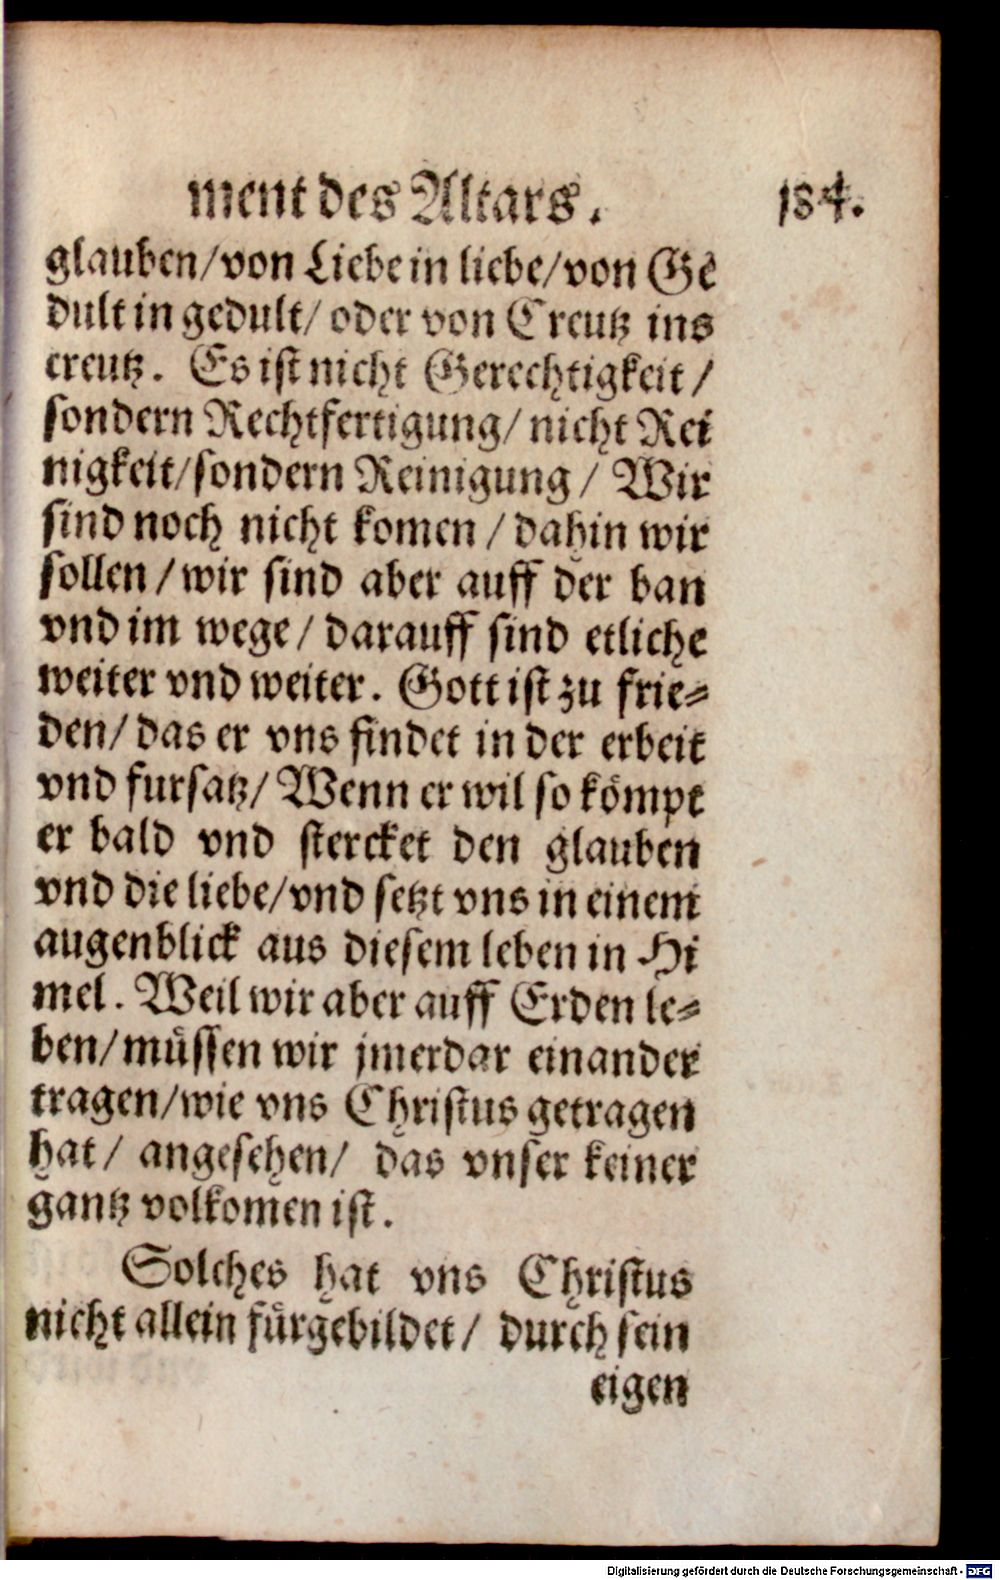 ment des Altars. 184.
glauben/von Liebe in liebe/von Ge
dult in gedult/ oder von Creutz ins
creutz. Es ist nicht Gerechtigkeit /
sondern Rechtfertigung/ nicht Rei
nigkeit/sondern Reinigung / Wir
sind noch nicht komen / dahin wir
sollen / wir sind aber auff der ban
vnd im wege / darauff sind etliche
weiter vnd weiter. Gott ist zu frie⸗
den/ das er vns findet in der erbeit
vnd fursatz/ Wenn er wil so kömpt
er bald vnd stercket den glauben
vnd die liebe/vnd setzt vns in einem
augenblick aus diesem leben in Hi
mel. Weil wir aber auff Erden le⸗
ben/müssen wir jmerdar einander
tragen/wie vns Christus getragen
hat/ angesehen/ das vnser keiner
gantz volkomen ist.
Solches hat vns Christus
nicht allein fürgebildet/ durch sein
eigen
Digitalisierung gefördert durch die Deutsche Forschungsgemeinschaft - DFG